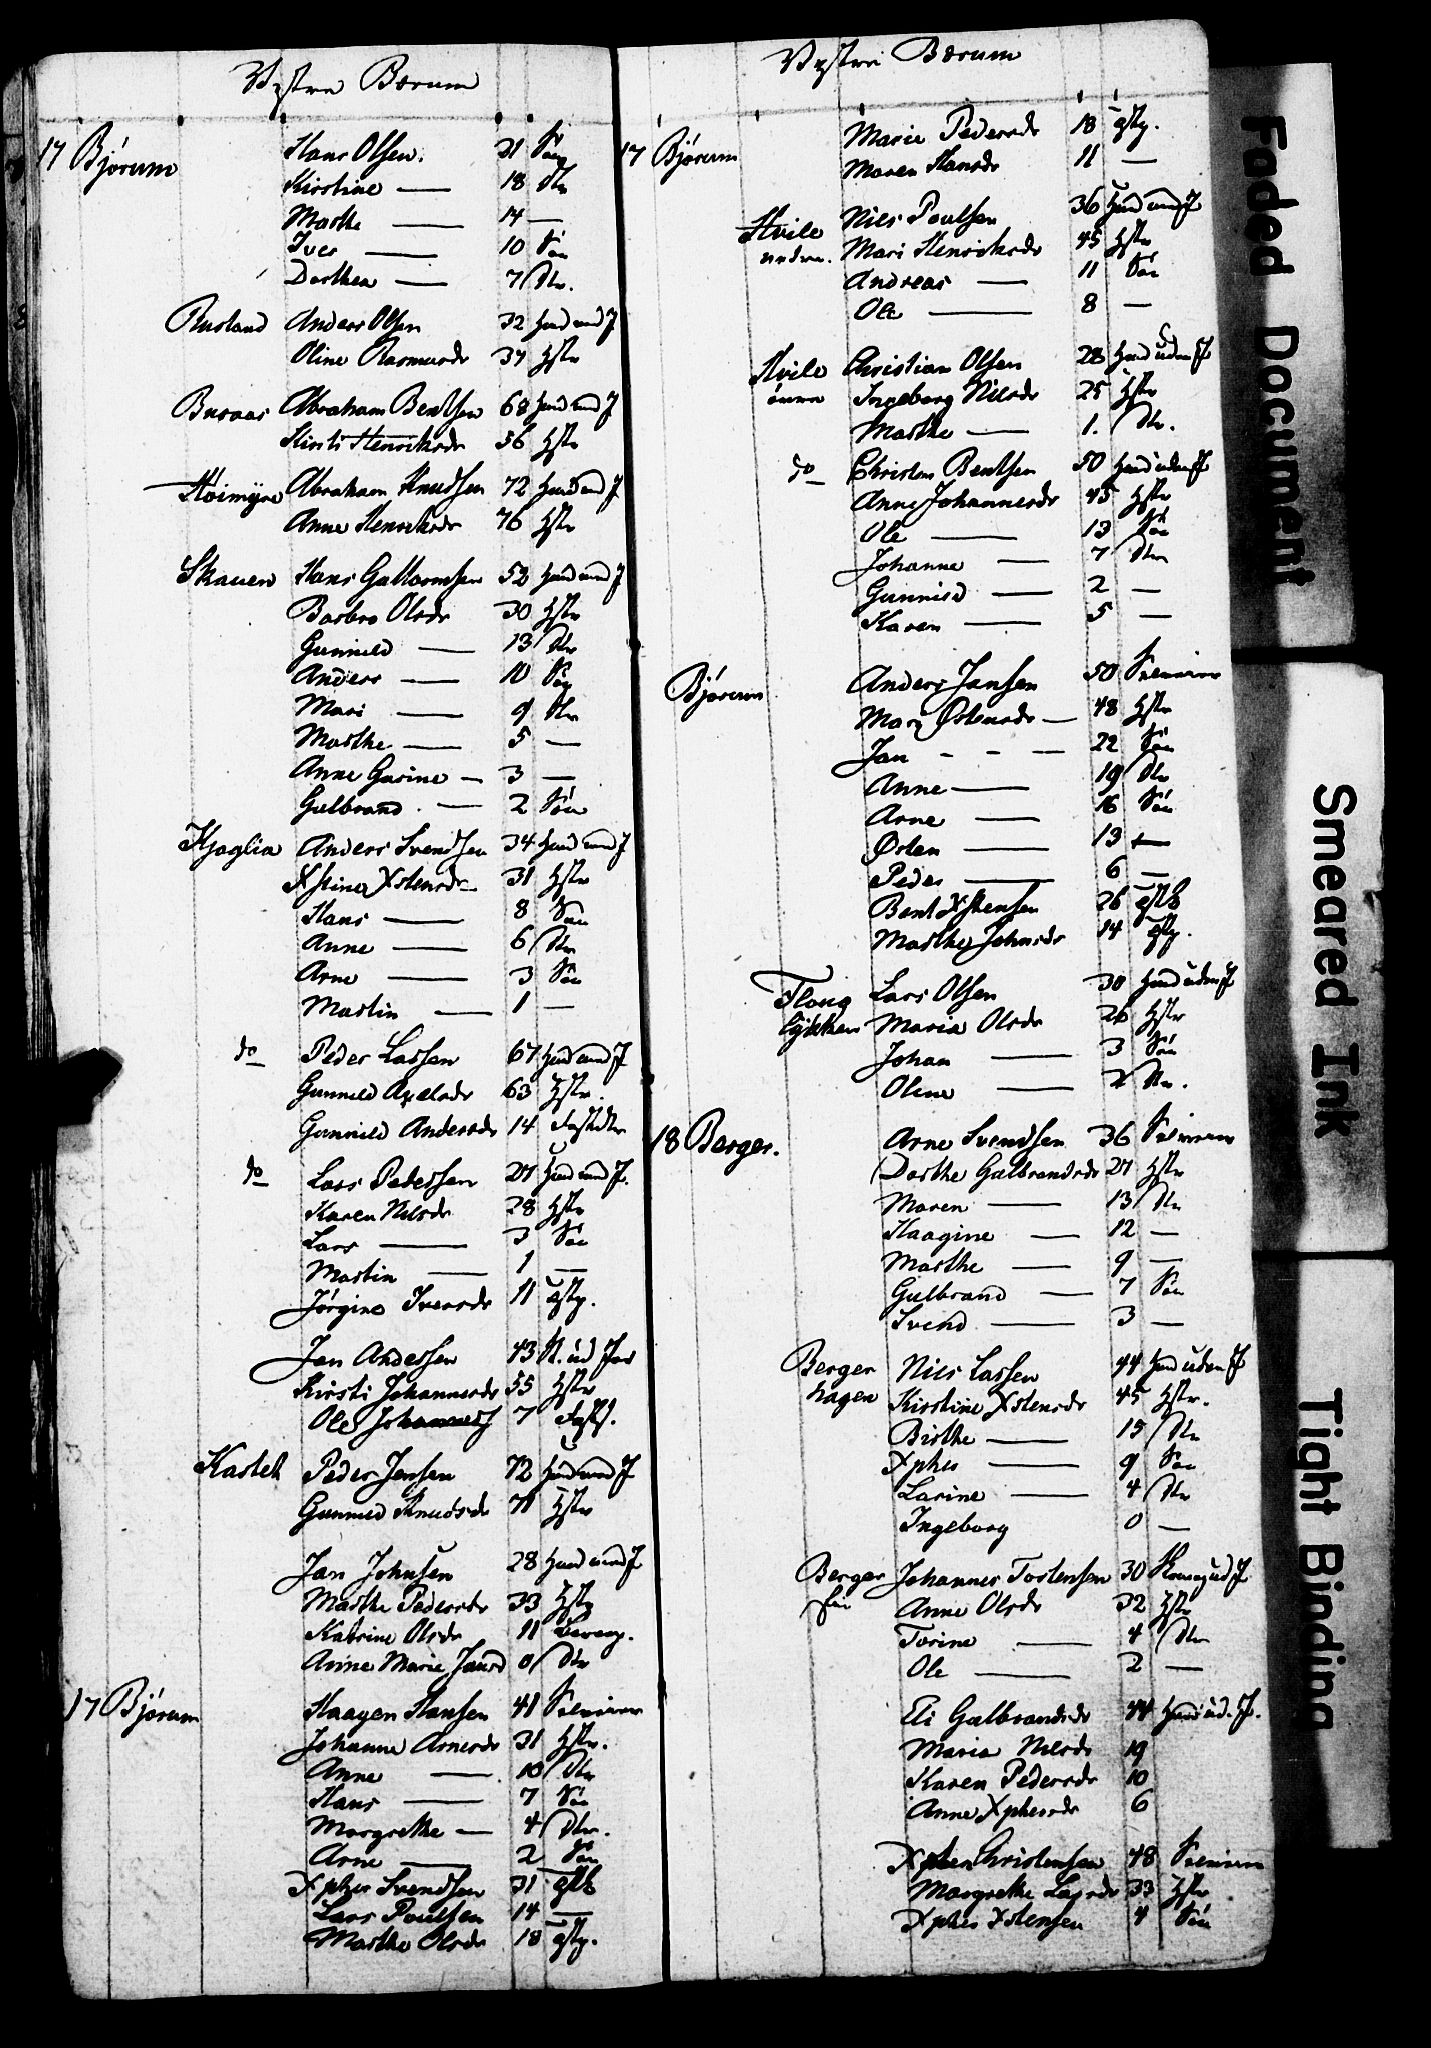 Vestre Bærum
17 Bjørum Hans Olsen. 21 Søn
Kirstine — 18 Dtr
Marthe — 14 —
Iver — 10 Søn
Dorthea — 7 Dtr.
Rustand Anders Olsen 32 Husmd med J
Oline Rasmusdr 37 Hstr
Buraas Abraham Bentsen 68 Husmd med J
Kirsti Henriksdr 56 Hstr
Høimyre Abraham Knudsen 72 Husmd med J
Anne Henriksdr 76 Hstr
Skauen Hans Guttormsen 52 Husmd med J
Barbro Olsdr 30 Hstr
Gunnild — 13 Dtr
Anders — 10 Søn
Mari — 9 Dtr
Marthe — 5 —
Anne Gurine — 3 —
Gulbrand — 2 Søn
Kjaglia Anders Svendsen 34 Husmd med J
Xstine Xstensdr 31 Hstr
Hans — 8 Søn
Anne — 6 Dtr
Arne — 3 Søn
Martin — 1 —
do Peder Larsen 67 Husmd med J
Gunnild Axelsdr 63 Hstr.
Gunnild Andersdr 14
do Lars Pedersen 27 Husmd med J.
Karen Nilsdr 28 Hstr
Lars — 3 Søn
Martin — 1 —
Jørgine Iversdr 11 Tjstp.
Jan Andersen 43
Kirsti Johannesdr 55 Hstr
Ole Johannes 7
Kastet Peder Jensen 72 Husmd med J
Gunnild Knudsdr 71 Hstr
Jan Johnsen 28 Husmd med J
Marthe Pedersdr 33 Hstr
Katrine Olsdr 11
Anne Marie Jansd 0 Dtr
17 Bjørum Haagen Hansen 41
Johanne Arnesdr 31 Hstr.
Anne — 10 Dtr
Hans — 7 Søn
Margrethe — 4 Dtr.
Arne — 2 Søn
Xpher Svendsen 31
Lars Poulsen 14 —
Marthe Olsdr 18 Tjstp.
Vestre Bærum
17 Bjørum Marie Pedersdr 18 Tjstp.
Maren Hansdr 11 —
Hvile nedre. Niels Poulsen 36 Husmd med J
Mari Henriksdr 45 Hstr
Andreas — 11 Søn
Ole — 8 —
Hvile øvre Christian Olsen 28 Husmd uden J
Ingeborg Nilsdr 25 Hstr
Marthe — 1. Dtr.
do Christen Bentsen 50 Husmd uden J
Anne Johannesdr 45 Hstr
Ole — 13 Søn
Johanne — 7 Dtr
Gunnild — 2 —
Karen — 5 —
Bjørum Anders Jansen 50
Mari Østensdr — 48 Hstr
Jan - - — 22 Søn
Anne — 19 Dtr
Arne — 16 Søn
Østen — 13 —
Peder — 6 —
Bent Xstensen 26
Marthe Johnsdr 14 Tjstp.
Flong løkken Lars Olsen 30 Husmd uden J
Maria Olsdr 26 Hstr
Johan — 3 Søn
Oline — 2 Dtr.
18 Berger. Arne Svendsen 36
Dorthe Gulbrandsdr 27 Hstr
Maren — 13 Dtr
Haagine — 12 —
Marthe — 9 —
Gulbrand — 7 Søn
Svend — 3 —
Berger hagen Niels Larsen 44 Husmd uden J
Kirstine Xstensdr 45 Hstr.
Birthe — 15 Dtr
Xpher — 9 Søn
Larine — 4 Dtr
Ingeborg 0 —
Berger Johannes Torstensen 30
Anne Olsdr 32 Hstr
Torine — 4 Dtr
Ole — 2 —
Eli Gulbrandsdr 44 Husmd ud. J.
Maria Nilsdr 19
Karen Pedersdr 10
Anne Xphersdr 6
Christensen 48
Margrethe Larsdr 33 Hstr
Xpher Xstensen 4 Søn
Faded Document
Smeared Ink
Tight Binding